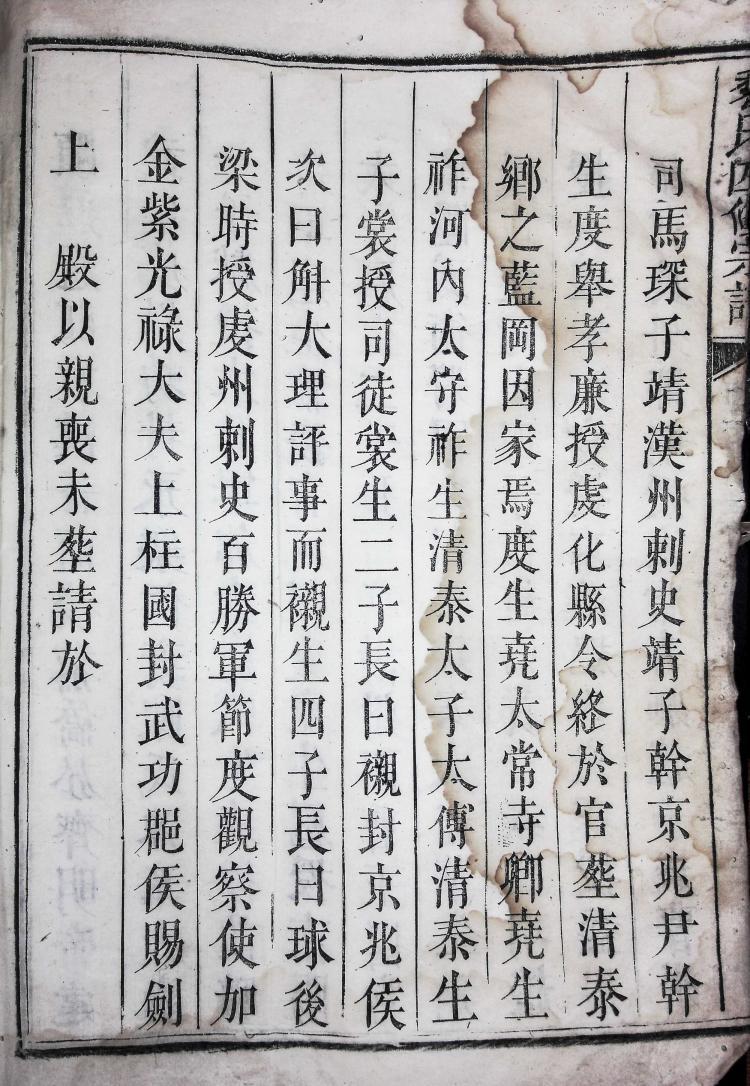 氏四修宗譜
司馬琛子靖漢州刺史靖子幹京兆尹幹
生度舉孝廉授虔化縣令終於官塟清泰
鄉之藍岡因家焉度生堯太常寺卿堯生
祚河內太守祚生清泰太子太傅清泰生
子裳授司徒裳生二子長曰襯封京兆侯
次曰斛大理評事而襯生四子長曰球後
梁時授虔州刺史百勝軍節度觀察使加
金紫光祿大夫上柱國封武功郡侯賜劍
上殿以親喪未塟請於